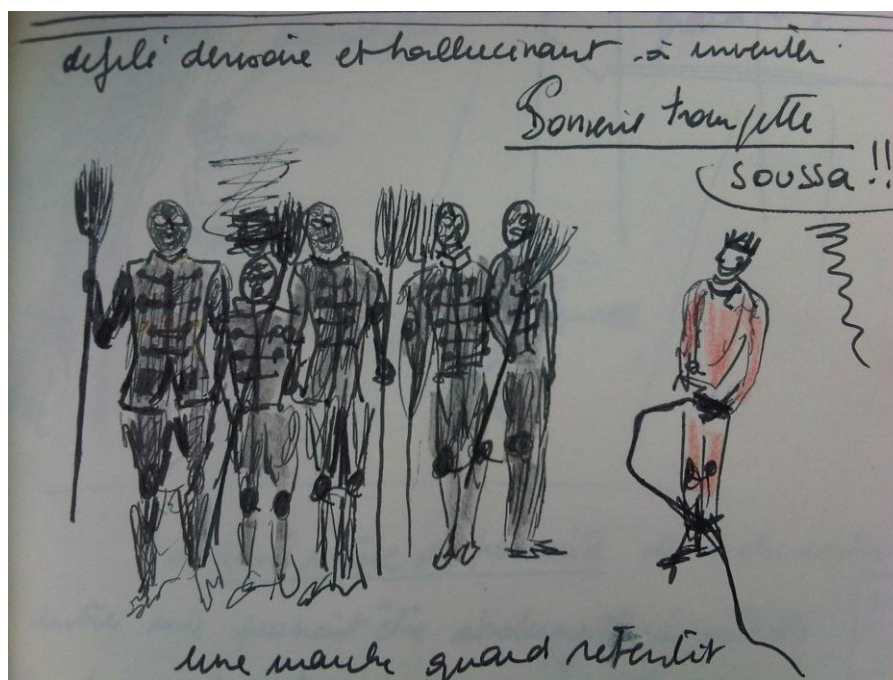 defilé dérisoire et hallucinant à inventer.
Sonnerie trompette
soussa !!
une marche quand retentit